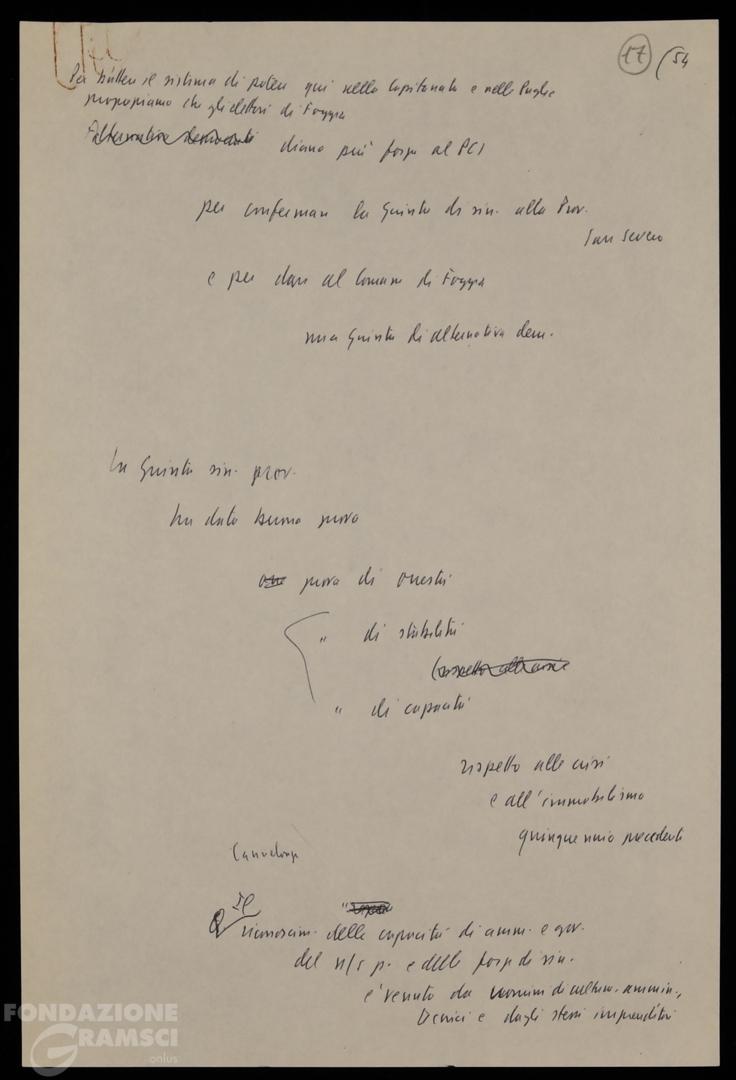 17 /54
Per battere il sistema di potere qui nella Capitanata e nelle Puglie
proponiamo che gli elettori di Foggia
Alternativa democratica diano più forza al PCI
per confermare la Giunta di sin. alla Prov.
San Severo
e per dare al Comune di Foggia
una Giunta di alternativa dem.
La Giunta sin. prov.
ha dato buona prova
one prova di onestà
" di stabilità
(rispetto alle crisi
" di capacità
rispetto alle crisi
e all'immobilismo
quinquennio precedente
Il
riconoscim. delle capacità di amm. e gov.
del n/s p. e delle forze di sin.
è venuto da uomini di cultura, ammin.,
tecnici e dagli stessi imprenditori
FONDAZIONE
GRAMSCI
onlus